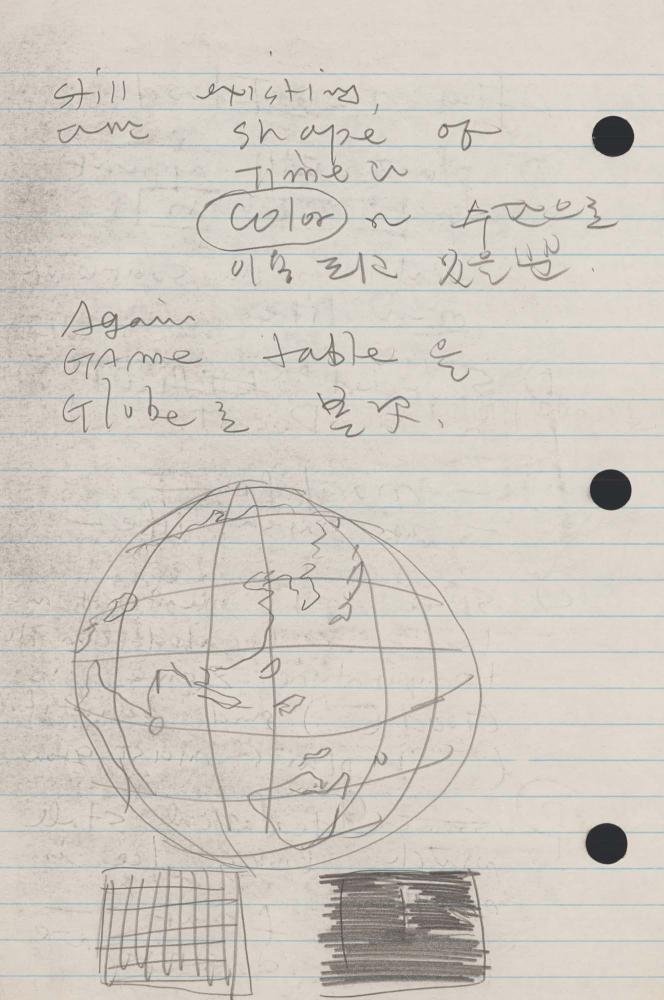 still existing,
shape of
Time
Color 수준으로
이동 되고 있을 뿐.
Again
GAME table 을
Globe로 볼 수.